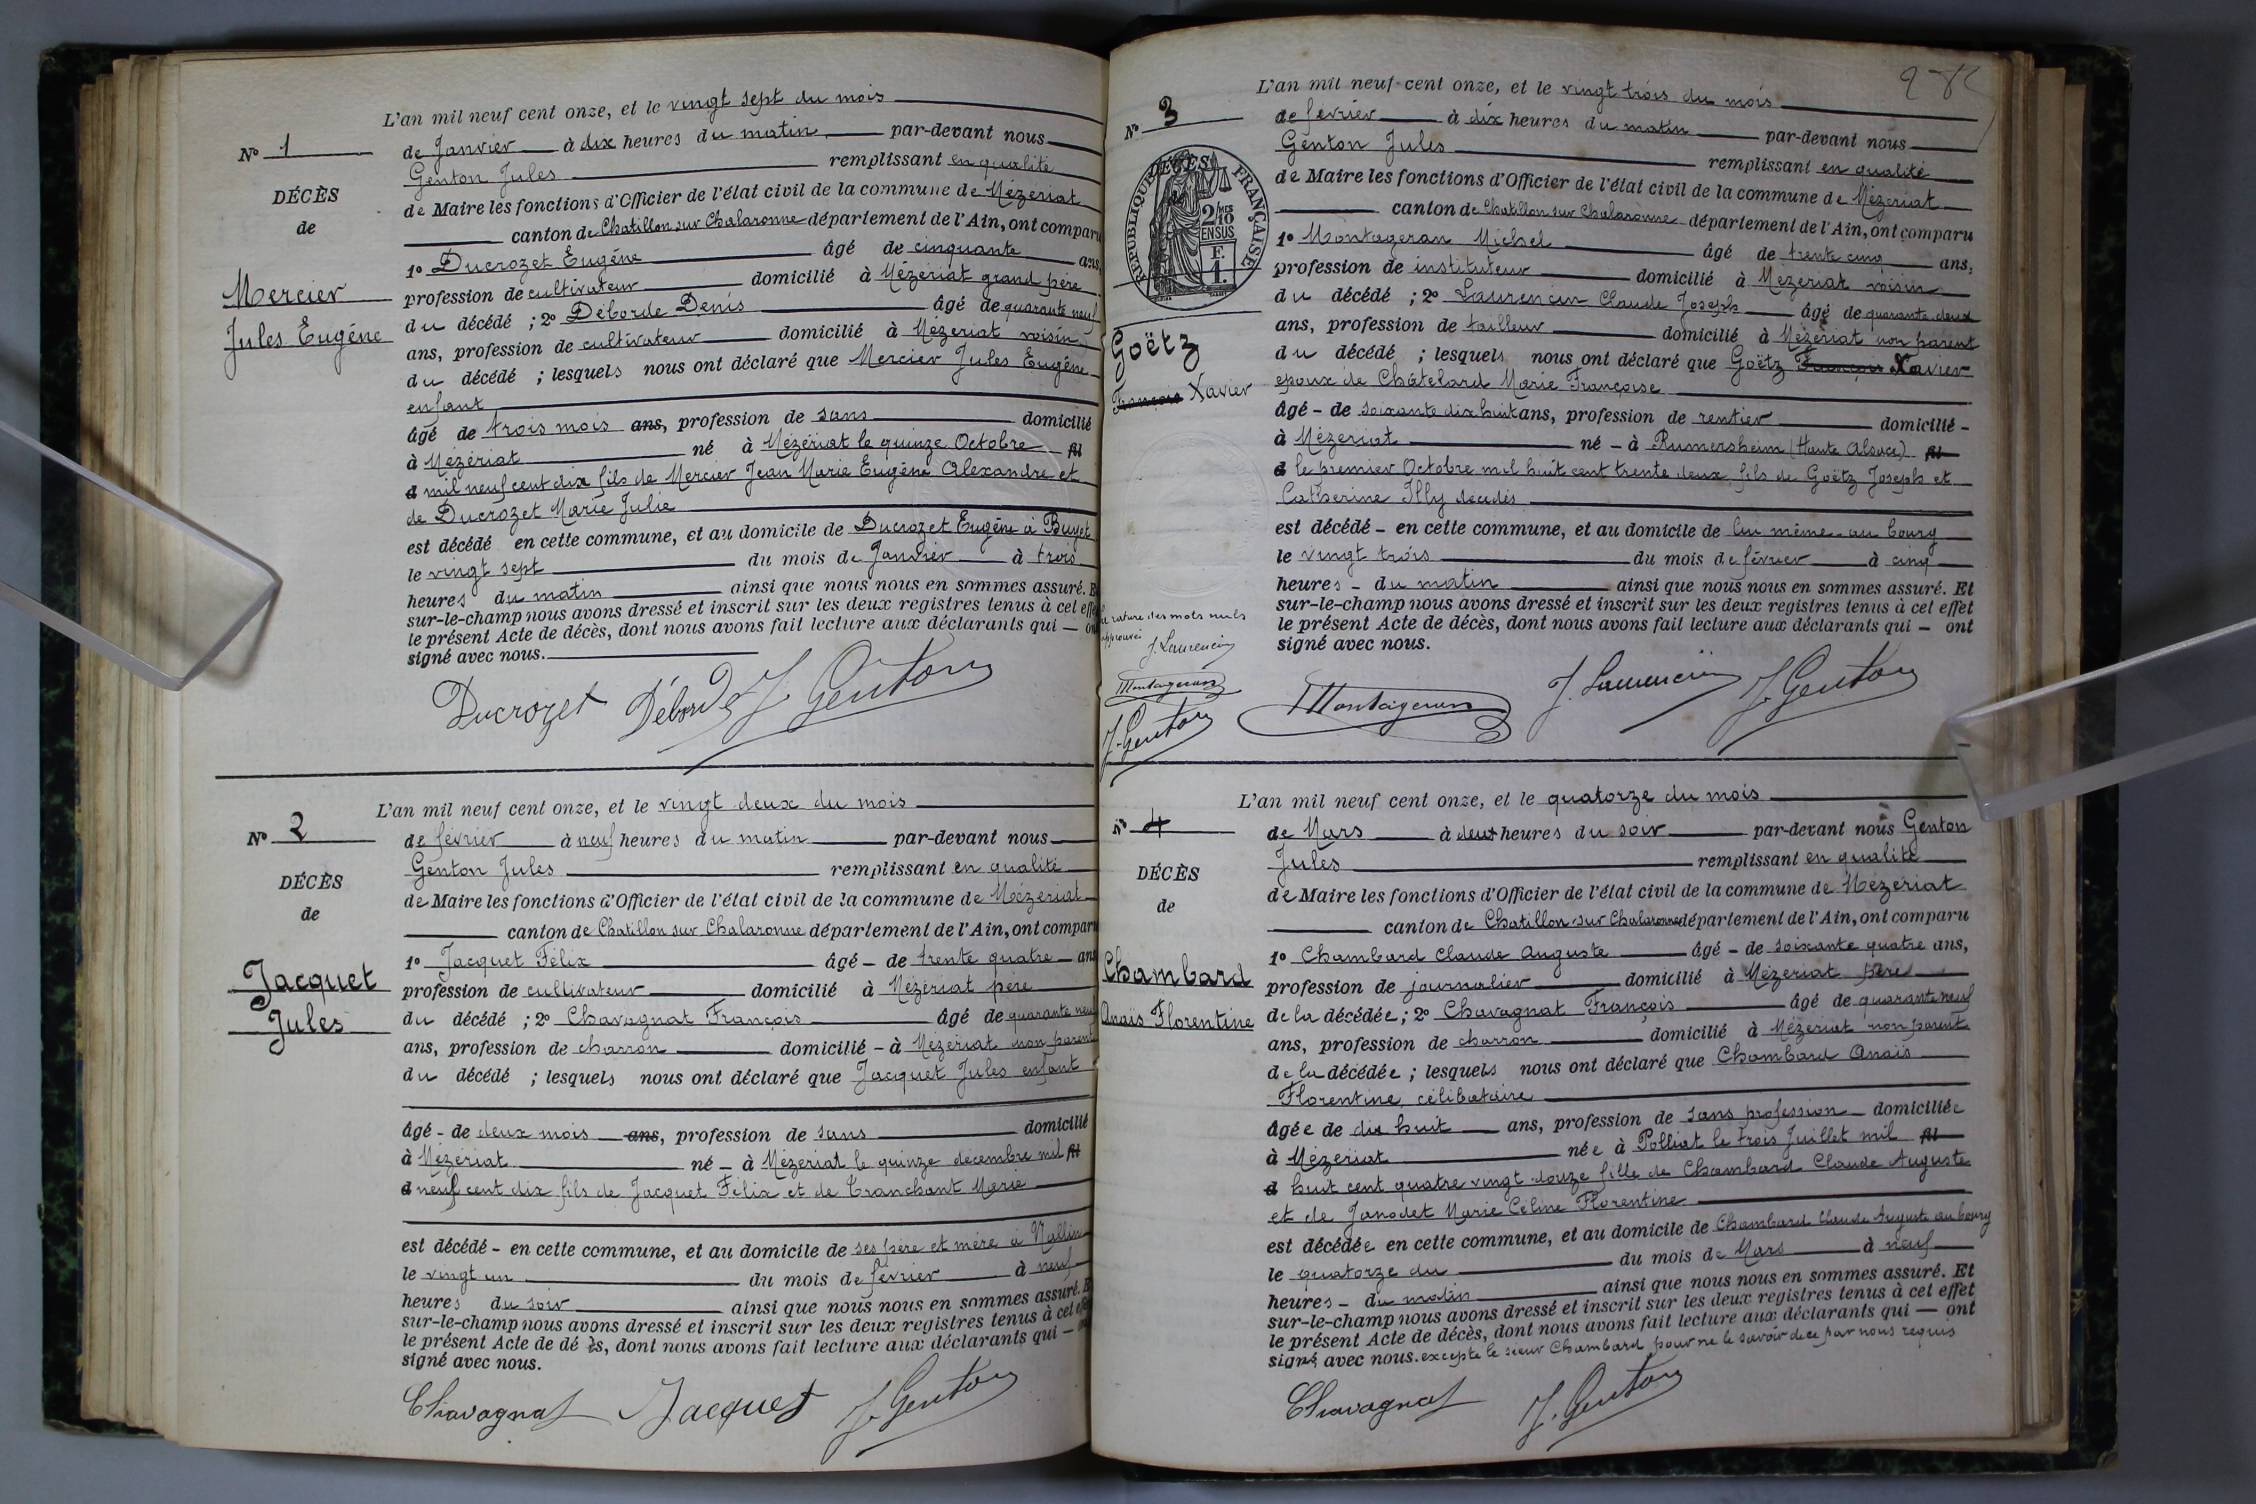 L'an mil neuf cent onze, et le vingt sept du mois
Nº 1
de Janvier à dix heures du matin, par-devant nous
Genton Jules remplissant en qualité
DÉCÈS
de Maire les fonctions d'Officier de l'état civil de la commune de Mézeriat
de
canton de Chatillon sur Chalaronne département de l'Ain, ont comparu
1º Ducrozet Eugéne âgé de cinquante ans,
Mercier
profession de cultivateur domicilié à Mézériat grand père
du décédé ; 2º Déborde Denis âgé de quarante neuf
Jules Eugéne
ans, profession de cultivateur domicilié à Mézeriat voisin
du décédé ; lesquels nous ont déclaré que Mercier Jules Eugéne
enfant
âgé de trois mois ans, profession de sans domicilié
à Mézériat né à Mézériat le quinze Octobre fil
d mil neuf cent dix fils de Mercier Jean Marie Eugéne Alexandre et
de Ducrozet Marie Julie
est décédé en cette commune, et au domicile de Ducrozet Eugéne à Buget
le vingt sept du mois de Janvier à trois
heures du matin ainsi que nous nous en sommes assuré. Et
sur-le-champ nous avons dressé et inscrit sur les deux registres tenus à cet effet
le présent Acte de décès, dont nous avons fait lecture aux déclarants qui — ont
signé avec nous.
Ducrozet Déborde J. Genton
L'an mil neuf cent onze, et le vingt deux du mois
Nº 2
de février à neuf heures du matin par-devant nous
Genton Jules remplissant en qualité
DÉCÈS
de Maire les fonctions d'Officier de l'état civil de la commune de Mézeriat
de
canton de Chatillon sur Chalaronne département de l'Ain, ont comparu
1º Jacquet Félix âgé - de trente quatre ans
Jacquet
profession de cultivateur domicilié à Mézériat père
Jules
du décédé ; 2º Chavagnat François âgé de quarante neuf
ans, profession de charron domicilié - à Mézeriat non parent
du décédé ; lesquels nous ont déclaré que Jacquet Jules enfant
âgé - de deux mois ans, profession de sans domicilié
à Mézeriat né - à Mézeriat le quinze décembre mil fil
d neuf cent dix fils de Jacquet Félix et de Tranchant Marie
est décédé - en cette commune, et au domicile de ses père et mère à Vallin
le vingt un du mois de février à neuf
heures du soir ainsi que nous nous en sommes assuré. Et
sur-le-champ nous avons dressé et inscrit sur les deux registres tenus à cet effet
le présent Acte de décès, dont nous avons fait lecture aux déclarants qui — ont
signé avec nous.
Chavagnat Jacquet J. Genton
L'an mil neuf cent onze, et le vingt trois du mois
Nº 3
de février à dix heures du matin par-devant nous
Genton Jules remplissant en qualité
RÉPUBLIQUE FRANÇAISE
2/10MES
EN SUS
F.
1.
de Maire les fonctions d'Officier de l'état civil de la commune de Mézeriat
canton de Chatillon sur Chalaronne département de l'Ain, ont comparu
1º Montageran Michel âgé de trente cinq ans,
profession de instituteur domicilié à Mézeriat voisin
du décédé ; 2º Laurencin Claude Joseph âgé de quarante deux
ans, profession de tailleur domicilié à Mézeriat non parent
Goëtz
du décédé ; lesquels nous ont déclaré que Goëtz François Xavier
François Xavier
epoux de Châtelard Marie Françoise
âgé - de soixante dix huit ans, profession de rentier domicilié -
à Mézeriat né - à Rumersheim (Haute Alsace) fil
d le premier Octobre mil huit cent trente deux fils de Goëtz Joseph et
Catherine Illy decedés
est décédé - en cette commune, et au domicile de lui même au bourg
le vingt trois du mois de février à cinq
heures - du matin ainsi que nous nous en sommes assuré. Et
sur-le-champ nous avons dressé et inscrit sur les deux registres tenus à cet effet
le présent Acte de décès, dont nous avons fait lecture aux déclarants qui — ont
signé avec nous.
rature des mots nuls
approuvée
J. Laurencin
Montageran
J. Genton
Montageran J. Laurencin J. Genton
L'an mil neuf cent onze, et le quatorze du mois
Nº 4
de Mars à deux heures du soir par-devant nous Genton
Jules remplissant en qualité
DÉCÈS
de Maire les fonctions d'Officier de l'état civil de la commune de Mézeriat
de
canton de Chatillon sur Chalaronne département de l'Ain, ont comparu
1º Chambard Claude Auguste âgé - de soixante quatre ans,
Chambard
profession de journalier domicilié à Mézeriat père
Anaïs Florentine
de la décédée ; 2º Chavagnat François âgé de quarante neuf
ans, profession de charron domicilié à Mézeriat non parent
de la décédée ; lesquels nous ont déclaré que Chambard Anaïs
Florentine, célibataire
âgée de dix huit ans, profession de sans profession domiciliée
à Mézériat née à Polliat le trois Juillet mil fil
d huit cent quatre vingt douze fille de Chambard Claude Auguste
et de Janodet Marie Céline Florentine
est décédée en cette commune, et au domicile de Chambard Claude Auguste au bourg
le quatorze du du mois de Mars à neuf
heures - du matin ainsi que nous nous en sommes assuré. Et
sur-le-champ nous avons dressé et inscrit sur les deux registres tenus à cet effet
le présent Acte de décès, dont nous avons fait lecture aux déclarants qui — ont
signé avec nous. excepté le sieur Chambard pour ne le savoir de ce par nous requis
Chavagnat J. Genton